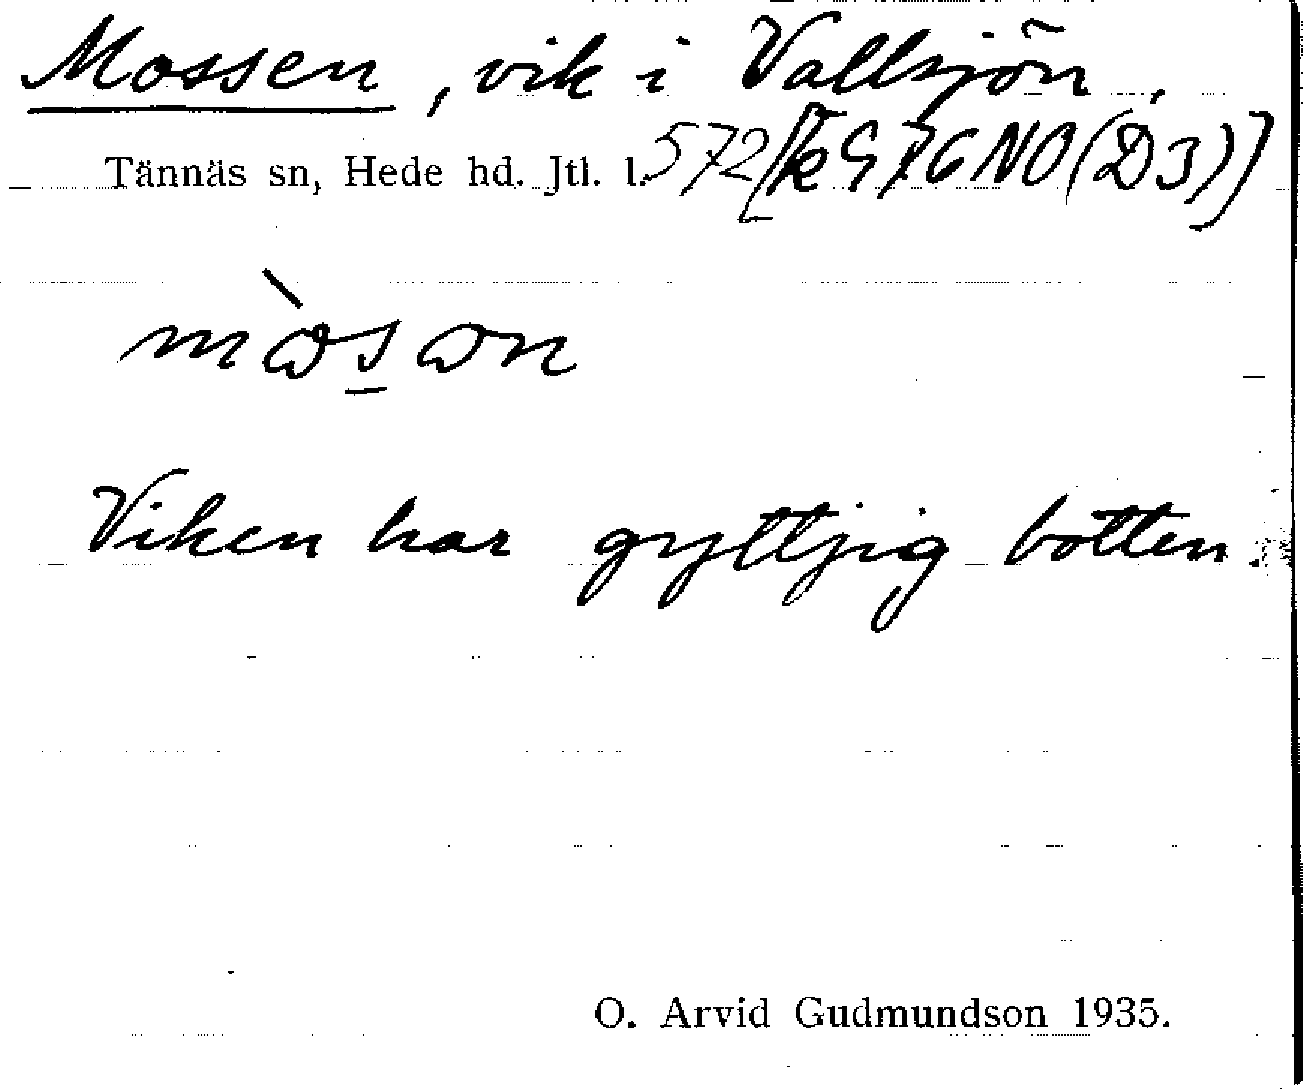 Mossen, vik i Vallsjön,
Tännäs sn, Hede hd. Jtl. l. 572 [Ek 976 NO (D3)]
mòson
Viken har gyttjig botten.
O. Arvid Gudmundson 1935.